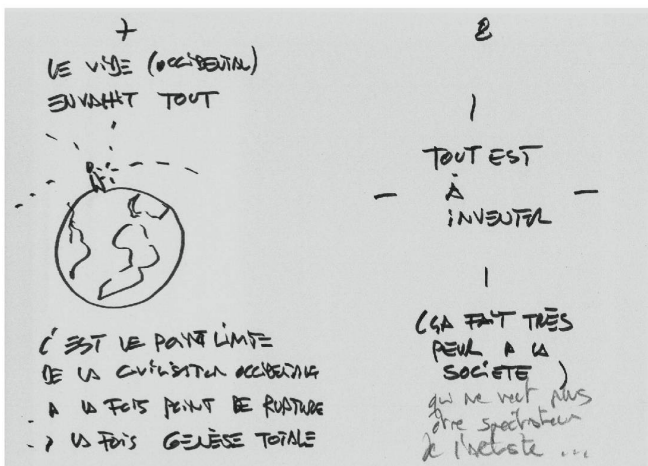 7
LE VIDE (OCCIDENTAL)
ENVAHIT TOUT
C'EST LE POINT LIMITE
DE LA CIVILISATION OCCIDENTALE
A LA FOIS POINT DE RUPTURE
A LA FOIS GENÈSE TOTALE
8
TOUT EST
À
INVENTER
(ÇA FAIT TRÈS
PEUR A LA
SOCIETE)
qui ne veut plus
être spectateur
de l'artiste ...